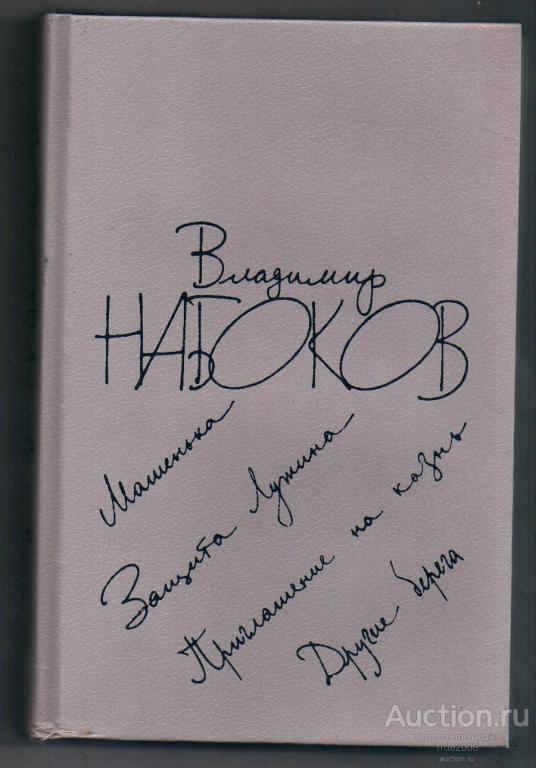 Владимир
НАБОКОВ
Машенька
Защита Лужина
Приглашение на казнь
Другие берега
Auction.ru
rrde2006
auction.ru